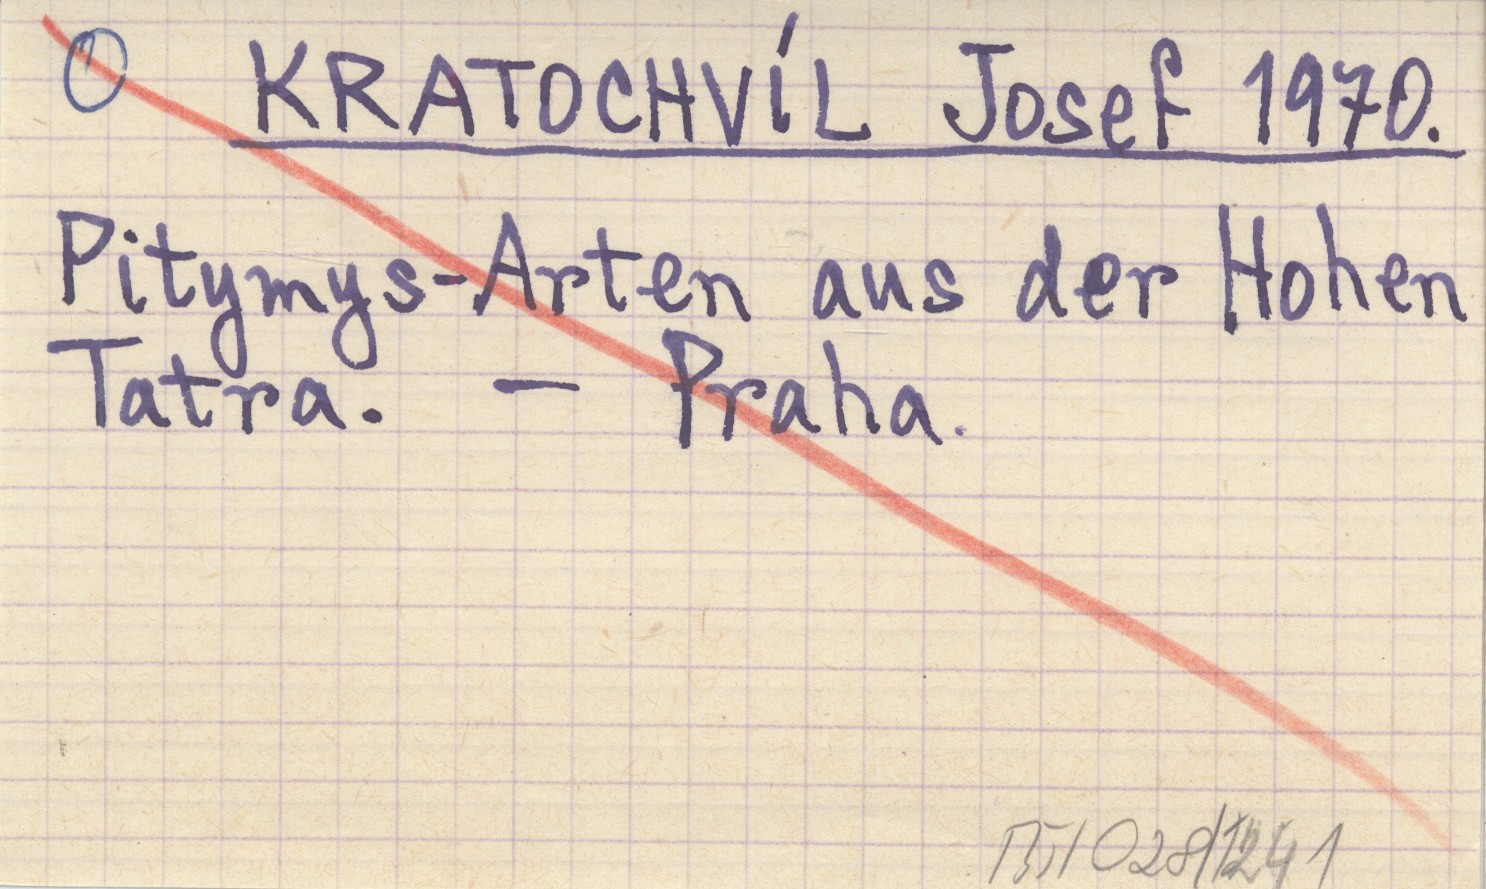 1 KRATOCHVÍL Josef 1970.
Pitymys-Arten aus der Hohen
Tatra. — Praha.